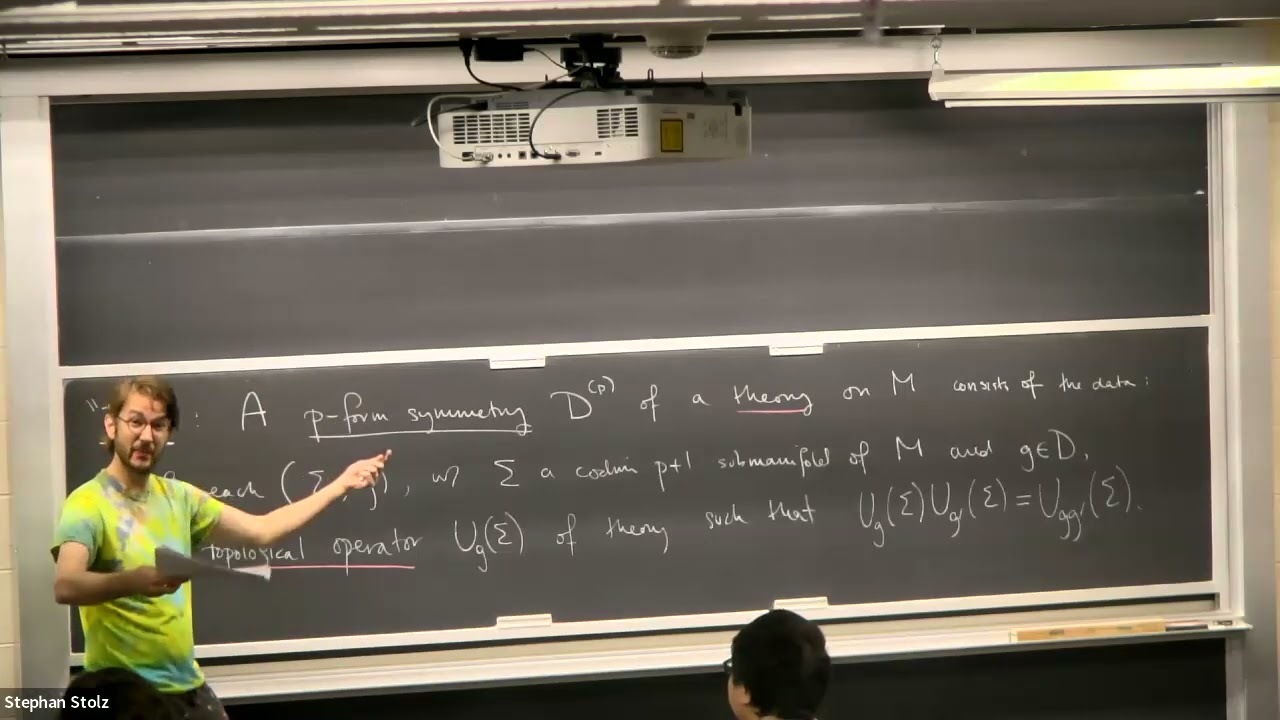 : A p-form symmetry D^(p) of a theory on M consists of the data:
each (Σ, g), w/ Σ a codim p+1 submanifold of M and g∈D,
topological operator U_g(Σ) of theory such that U_g(Σ)U_g'(Σ) = U_gg'(Σ).
Stephan Stolz